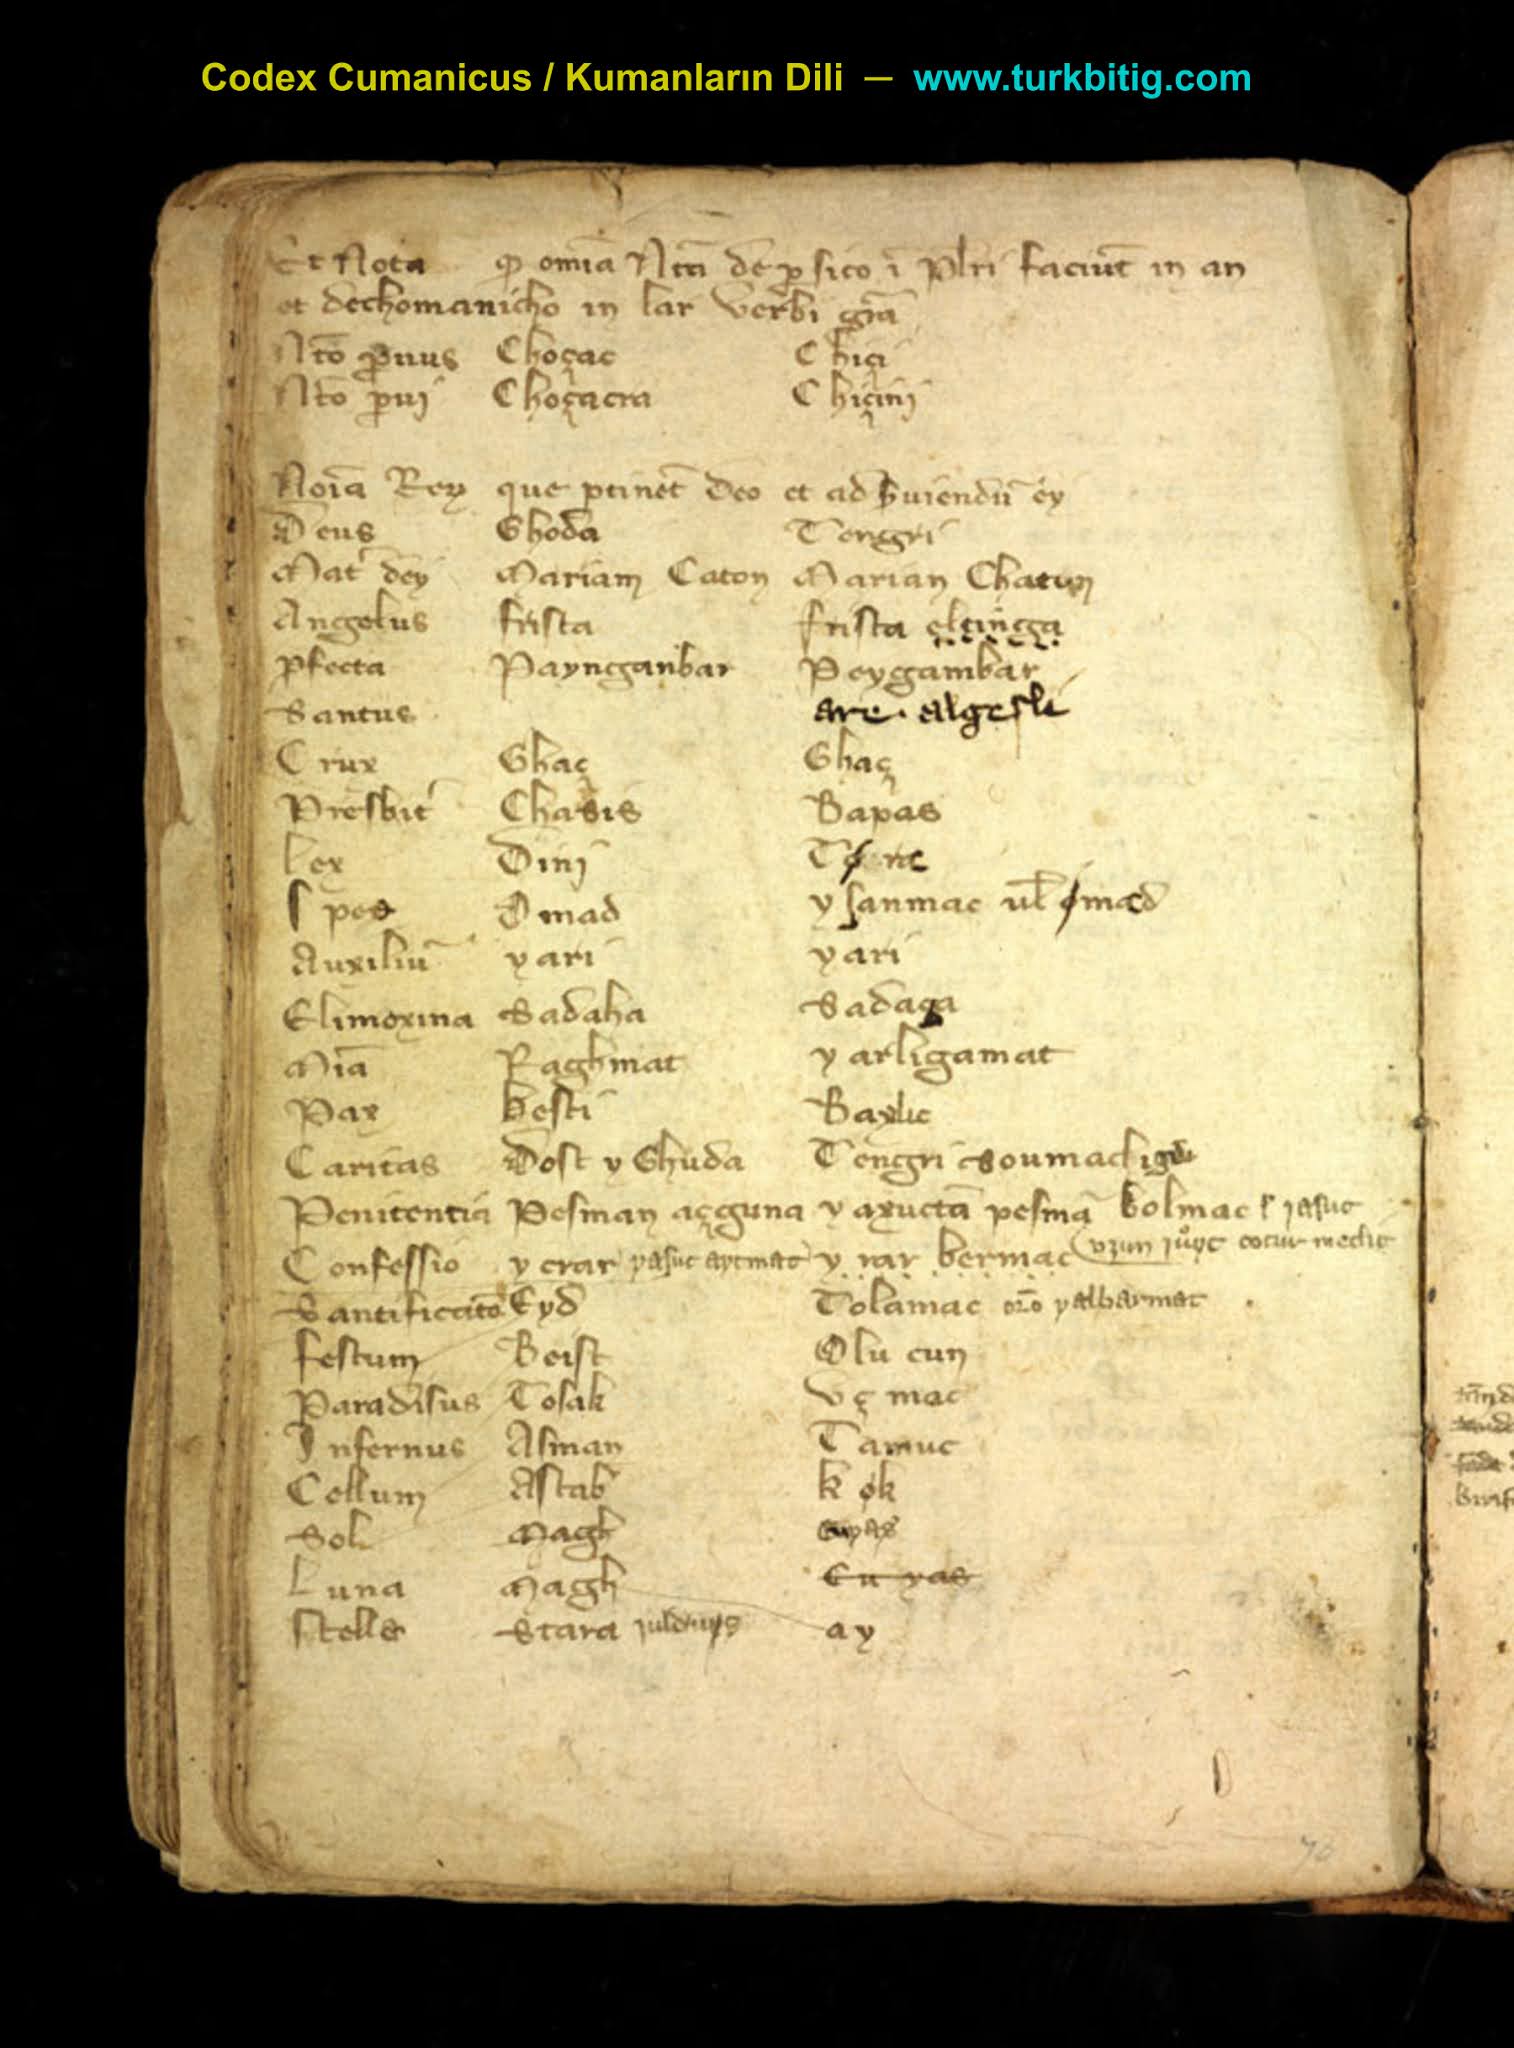 Codex Cumanicus / Kumanların Dili — www.turkbitig.com
Et Nota ꝙ omīa Ntā de ꝑsico ī plrī faciūt in an
et dechomanicho in lar verbi grā
Ntō pruus Choçac Chiçi
Ntō pui Choçacra Chiçinj
Noīa Rey que ptinēt deo et ad suiendū ey
Deus Ghoda Tengri
Mat' dey Mariam Caton Marian Chatun
Angelus frista frista
pfecta Payncganbar Peygambar
Santus are algesli
Crux Ghaç Ghaç
Presbit' Chasis Bapas
Lex Dinj
Spes Omad ysanmac ul omad
Auxiliū yari yari
Elimoxina Sadaha Sadaga
Mīa Raghmat yarligamat
Pax besti Baxluc
Caritas Dost y Ghuda Tengri soumachigi
Penitentia Pesman açguna yaxuctā pesmā bolmac
Confessio ycrar yasuc aytmac yrar bermac
Santificatō Eyd Tolamac orō yalbarmac
festum Beist Olu cun
Paradisus Tosak Uçmac
Infernus Asman Tamuc
Cellum Astab kok
Sol Magh cuyas
Luna Magh Cu yas
Stelle Stara ay